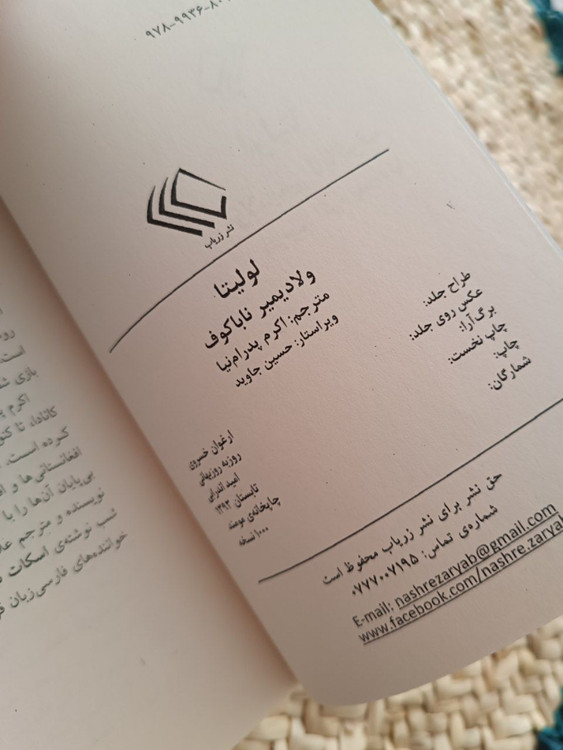 ۹۷۸-۹۹۳۶-۸۰
نشر زریاب
لولیتا
ولادیمیر ناباکوف
مترجم: اکرم پدرام‌نیا
ویراستار: حسین جاوید
طراح جلد: ارغوان خسروی
عکس روی جلد: روزبه روزبهانی
برگ‌آرا: امید اندرابی
چاپ نخست: تابستان ۱۳۹۳
چاپ: چاپخانه‌ی مومند
شمارگان: ۱۰۰۰ نسخه
حق نشر برای نشر زریاب محفوظ است
شماره‌ی تماس: ۰۷۷۷۰۰۷۱۹۵
E-mail: nashrezaryab@gmail.com
www.facebook.com/nashre.zaryab
است
بازی
اکرم
کانادا، تا
کرده است.
افغانستانی ها و
بی‌پایان آن‌ها را با
نویسنده و مترجم
شب نوشته‌ی اسکات
خواننده‌های فارسی‌زبان